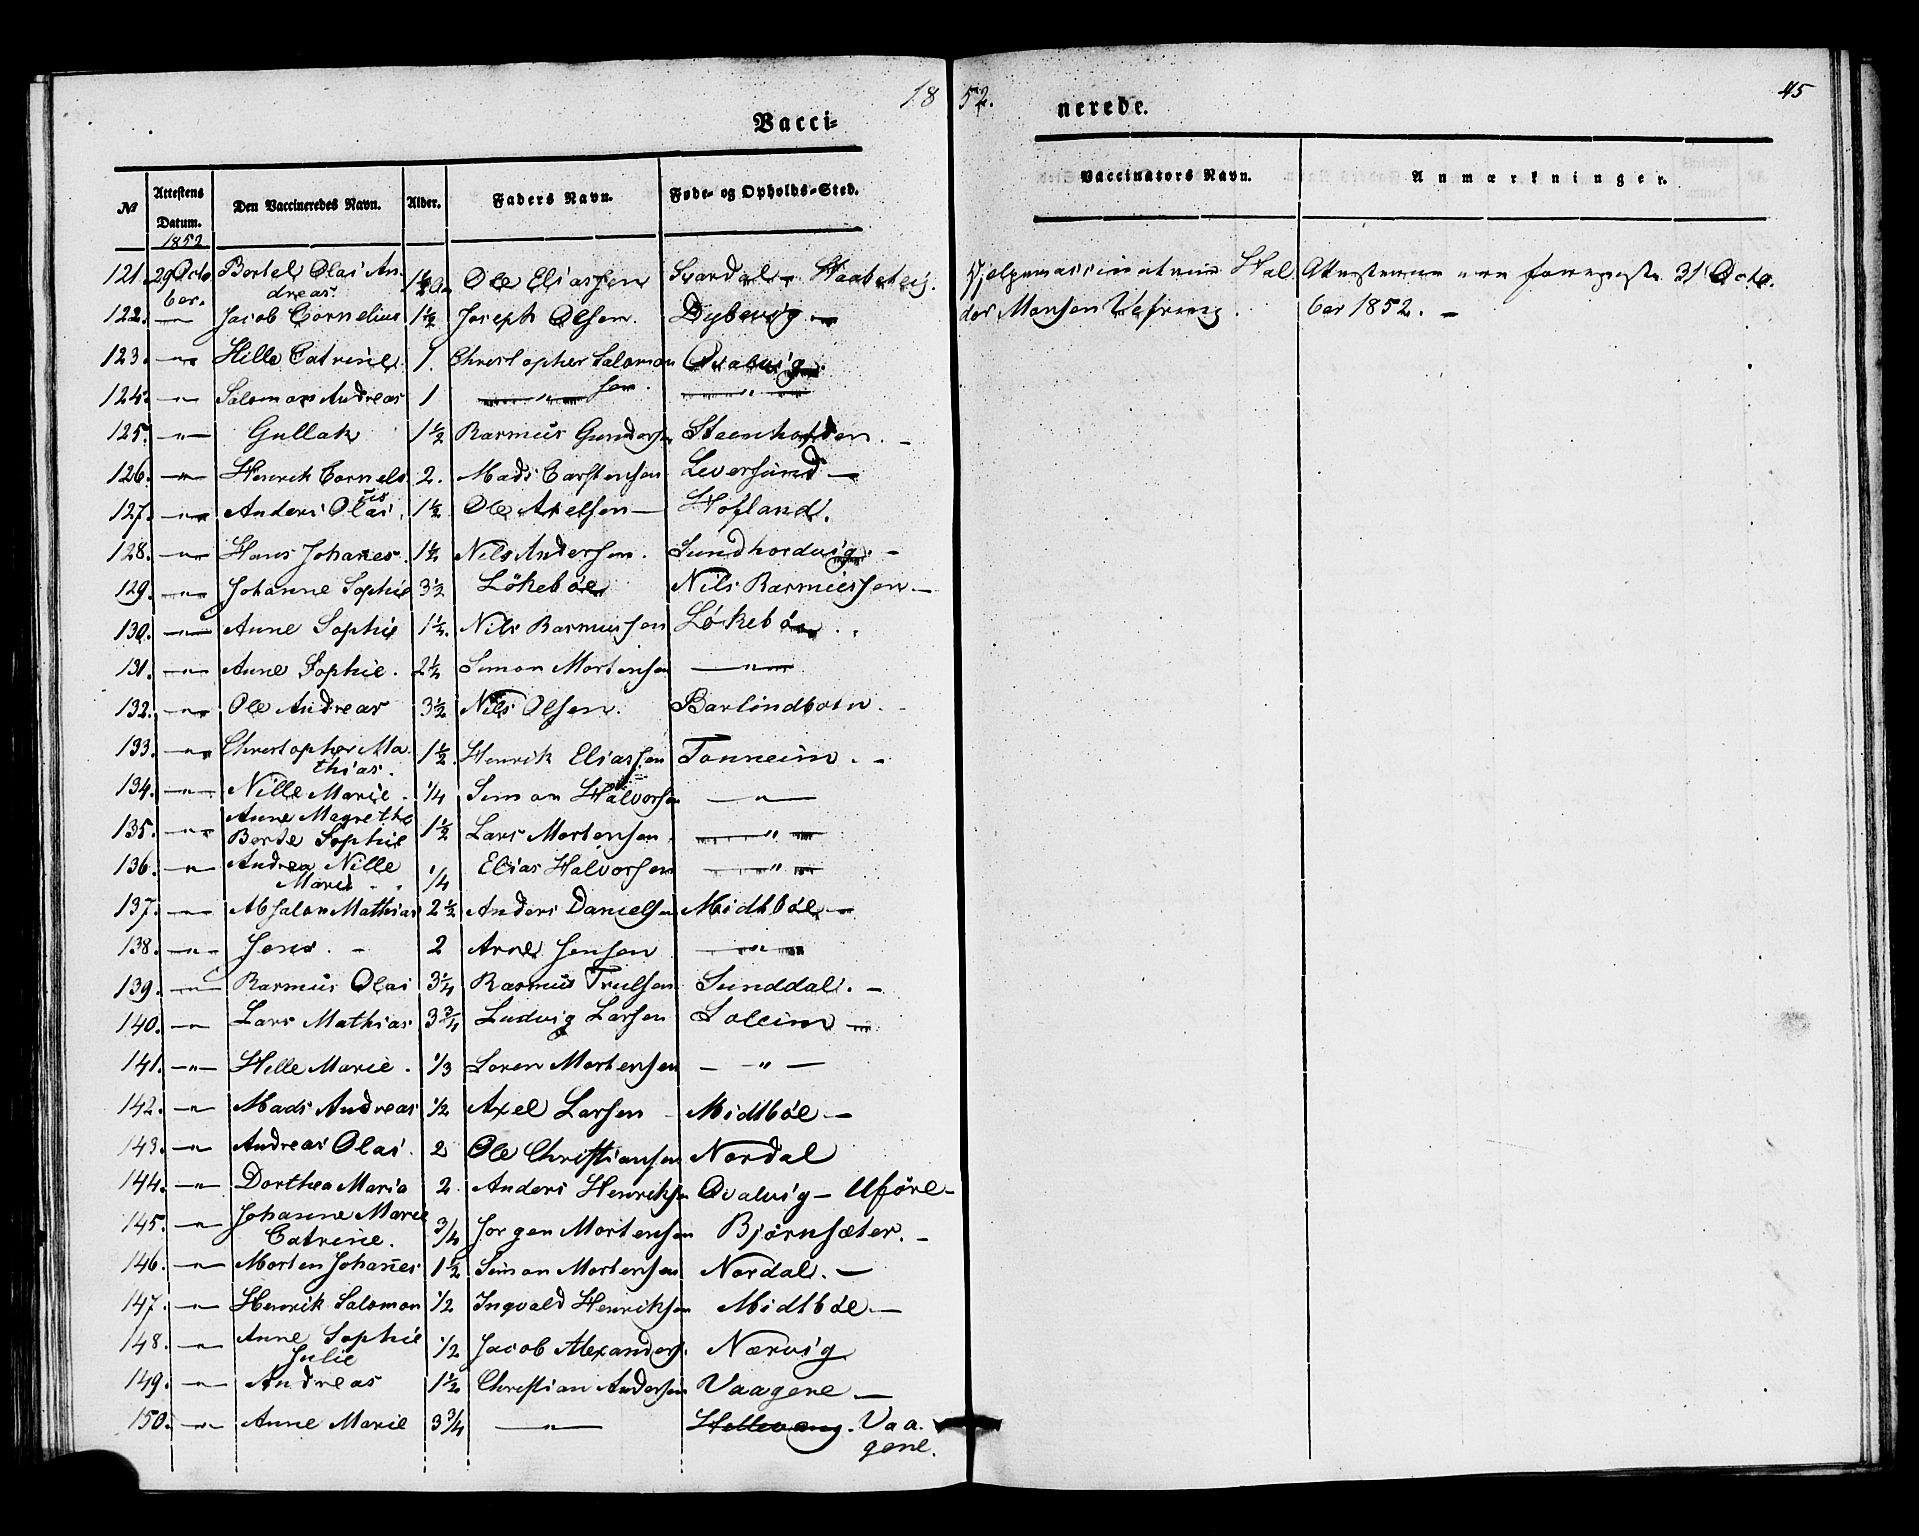 18 52. 45
Vacci= nerede.
№ Attestens Datum. Den Vaccineredes Navn. Alder. Faders Navn. Føde- og Opholds-Sted. Vaccinators Navn. Anmærkninger.
1852
121. 29 Octo Bertel Olai An- Ole Eliassen Svardal - Hjelpevaccinateur Hal Attesterne ere foreviste 31 Octo
ber. dreas. dor Monsen Vefring. ber 1852. -
122. -"- Jacob Cornelius 1½ Joseph Olsen. Dybevig -
123. -"- Hille Catrine. 1. Christopher Salomon Qvalvig.
sen.
124. -"- Salomon Andreas 1 -"- -"-
125. -"- Gullak 1½ Rasmus Gunders Steenhofden. -
126. -"- Henrik Cornels 2. Mads Carstensen Leversund -
127. -"- Anders Olai. 1½ Ole Axelsen - Hofland.
128. -"- Hans Johanes. 1½ Nils Andersen. Sundhordvig. -
129. -"- Johanne Sophie 3½ Løkebøe Nils Rasmussen -
130. -"- Anne Sophie 1½. Nils Rasmussen Løkebøe.
131. -"- Anne Sophie. 2½ Simon Mortensen -"-
132. -"- Ole Andreas 3½ Nils Olsen. Barlindbotn. -
133. -"- Christopher Ma 1½ Henrik Eliassen Tonneim. -
thias.
134. -"- Nille Marie. ¼ Simon Halvorsen -"-
135. -"- Anne Magrethe 1½ Lars Mortensen. -"-
Berte Sophie
136. -"- Andrea Nille ¼ Elias Halvorsen -"-
Marie
137. -"- Absalon Mathias 2½ Anders Danielsen Midtbøe -
138. -"- Jens. - 2 Arne Jensen -"-
139. -"- Rasmus Olai 3¼ Rasmus Trulsen Sunddal. -
140. -"- Lars Mathias 3¾ Ludvig Larsen Soleim -
141. -"- Hille Marie. ⅓ Soren Mortensen -"-
142. -"- Mads Andreas ½ Axel Larsen - Midtbøe -
143. -"- Andreas Olai. 2 Ole Christiansen Nordal
144. -"- Dorthea Maria 2 Anders Henriksen Qvalvig - Uføre -
145. -"- Johanne Marie ¾ Jorgen Mortensen Bjørnsæter. -
Catrine.
146. -"- Morten Johanes 1½ Simon Mortensen Nordal. -
147. -"- Henrik Salomon ½ Ingvald Henriksen Midtbøe -
148. -"- Anne Sophie ½ Jacob Alexanders. Nærvig
Julie
149. -"- Andreas 1½ Christian Andersen Vaagene -
150. -"- Anne Marie 3¾ -"- Hellevang. Vaa.
gene.